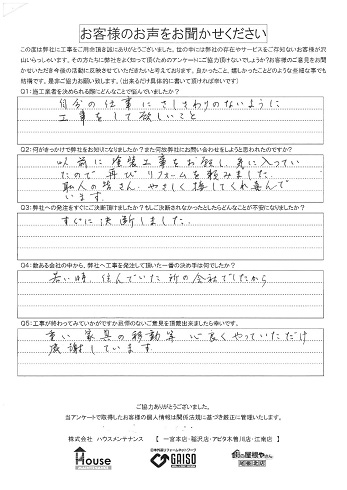 お客様のお声をお聞かせください
この度は弊社に工事をご用命頂き誠にありがとうございました。世の中には弊社の存在やサービスをご存知ないお客様が沢山いらっしゃいます。その方たちに弊社をよく知って頂くためのアンケートにご協力頂けないでしょうか?お客様のご意見をお聞かせいただき今後の活動に反映させていただきたいと考えております。良かったこと、嬉しかったことどのような些細な事でも結構です。是非ご協力お願い致します。(出来るだけ具体的に書いて頂ければ幸いです)
Q1:施工業者を決められる際にどんなことで悩んでいましたか?
自分の仕事にさしさわりのないように
工事をして欲しいこと
Q2:何がきっかけで弊社をお知りになりましたか?また何故弊社にお問い合わせをしようと思われたのですか?
以前に塗装工事をお願し、気に入ってい
たので再びリフォームを頼みました。
職人の皆さん、やさしく接してくれ喜んで
います。
Q3:弊社への発注をすぐにご決断頂けましたか?もしご決断されなかったとしたらどんなことが不安になりましたか?
すぐに決断しました。
Q4:数ある会社の中から、弊社へ工事を発注して頂いた一番の決め手は何でしたか?
若い時、住んでいた所の会社でしたから
Q5:工事が終わってみていかがですか忌憚のないご意見を頂戴出来ましたら幸いです。
重い家具の移動等 心良くやっていただけ
感謝しています。
ご協力ありがとうございました。
当アンケートで取得したお客様の個人情報は関係法規に基づき厳正に管理いたします。
株式会社 ハウスメンテナンス 【 一宮本店・稲沢店・アピタ木曽川店・江南店 】
House
日本外装リフォームネットワーク
GAISO
街の屋根やさん